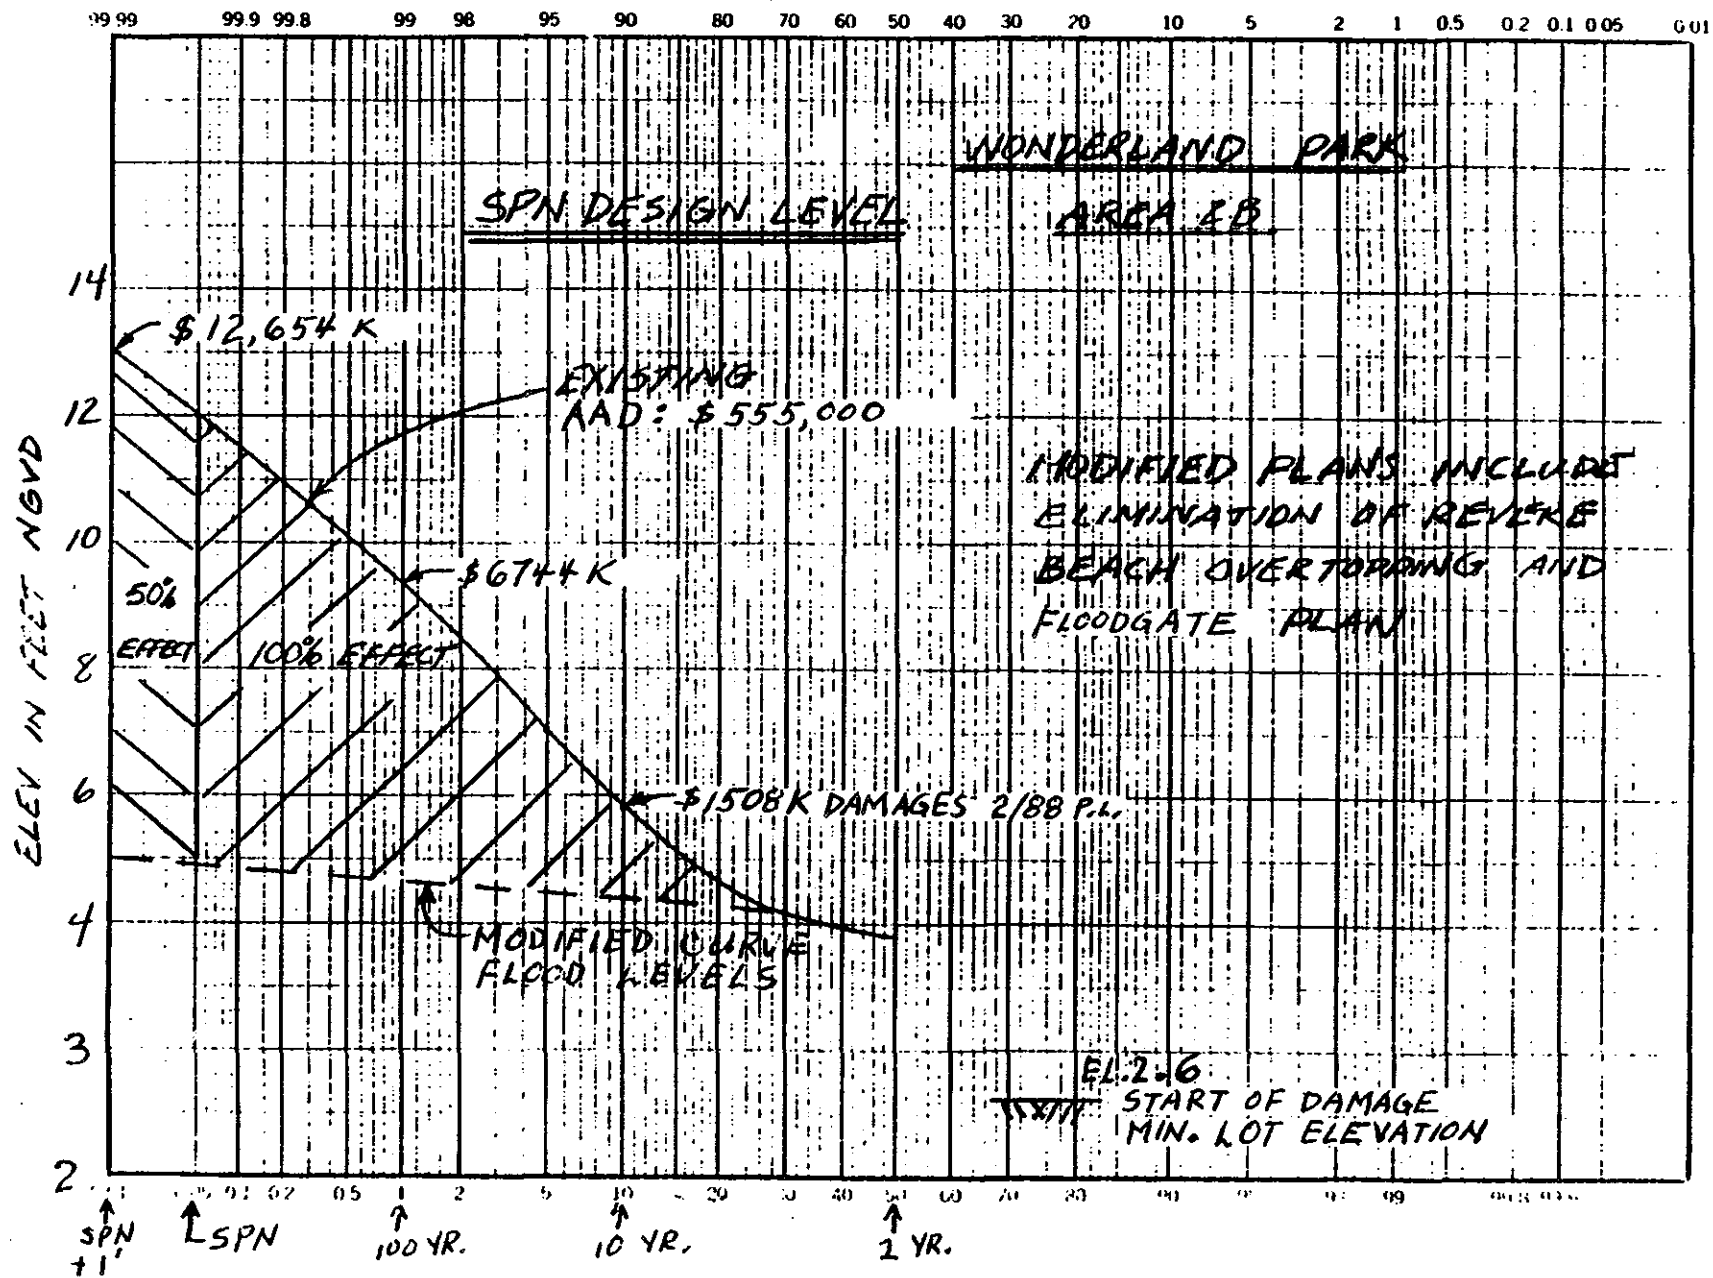 99.99 99.9 99.8 99 98 95 90 80 70 60 50 40 30 20 10 5 2 1 0.5 0.2 0.1 0.05 0.01
WONDERLAND PARK
SPN DESIGN LEVEL
AREA 2B
14
$12,654 K
EXISTING
AAD: $555,000
12
MODIFIED PLANS INCLUDE
ELIMINATION OF REVERE
BEACH OVERTOPPING AND
FLOODGATE PLAN
10
$6744 K
50%
EFFECT
100% EFFECT
8
ELEV IN FEET NGVD
6
$1508K DAMAGES 2/88 P.L.
4
MODIFIED CURVE
FLOOD LEVELS
3
EL. 2.6
START OF DAMAGE
MIN. LOT ELEVATION
2
0.1 0.2 0.5 1 2 5 10 20 30 40 50 60 70 80 90 99
SPN
+1'
SPN
100 YR.
10 YR.
2 YR.